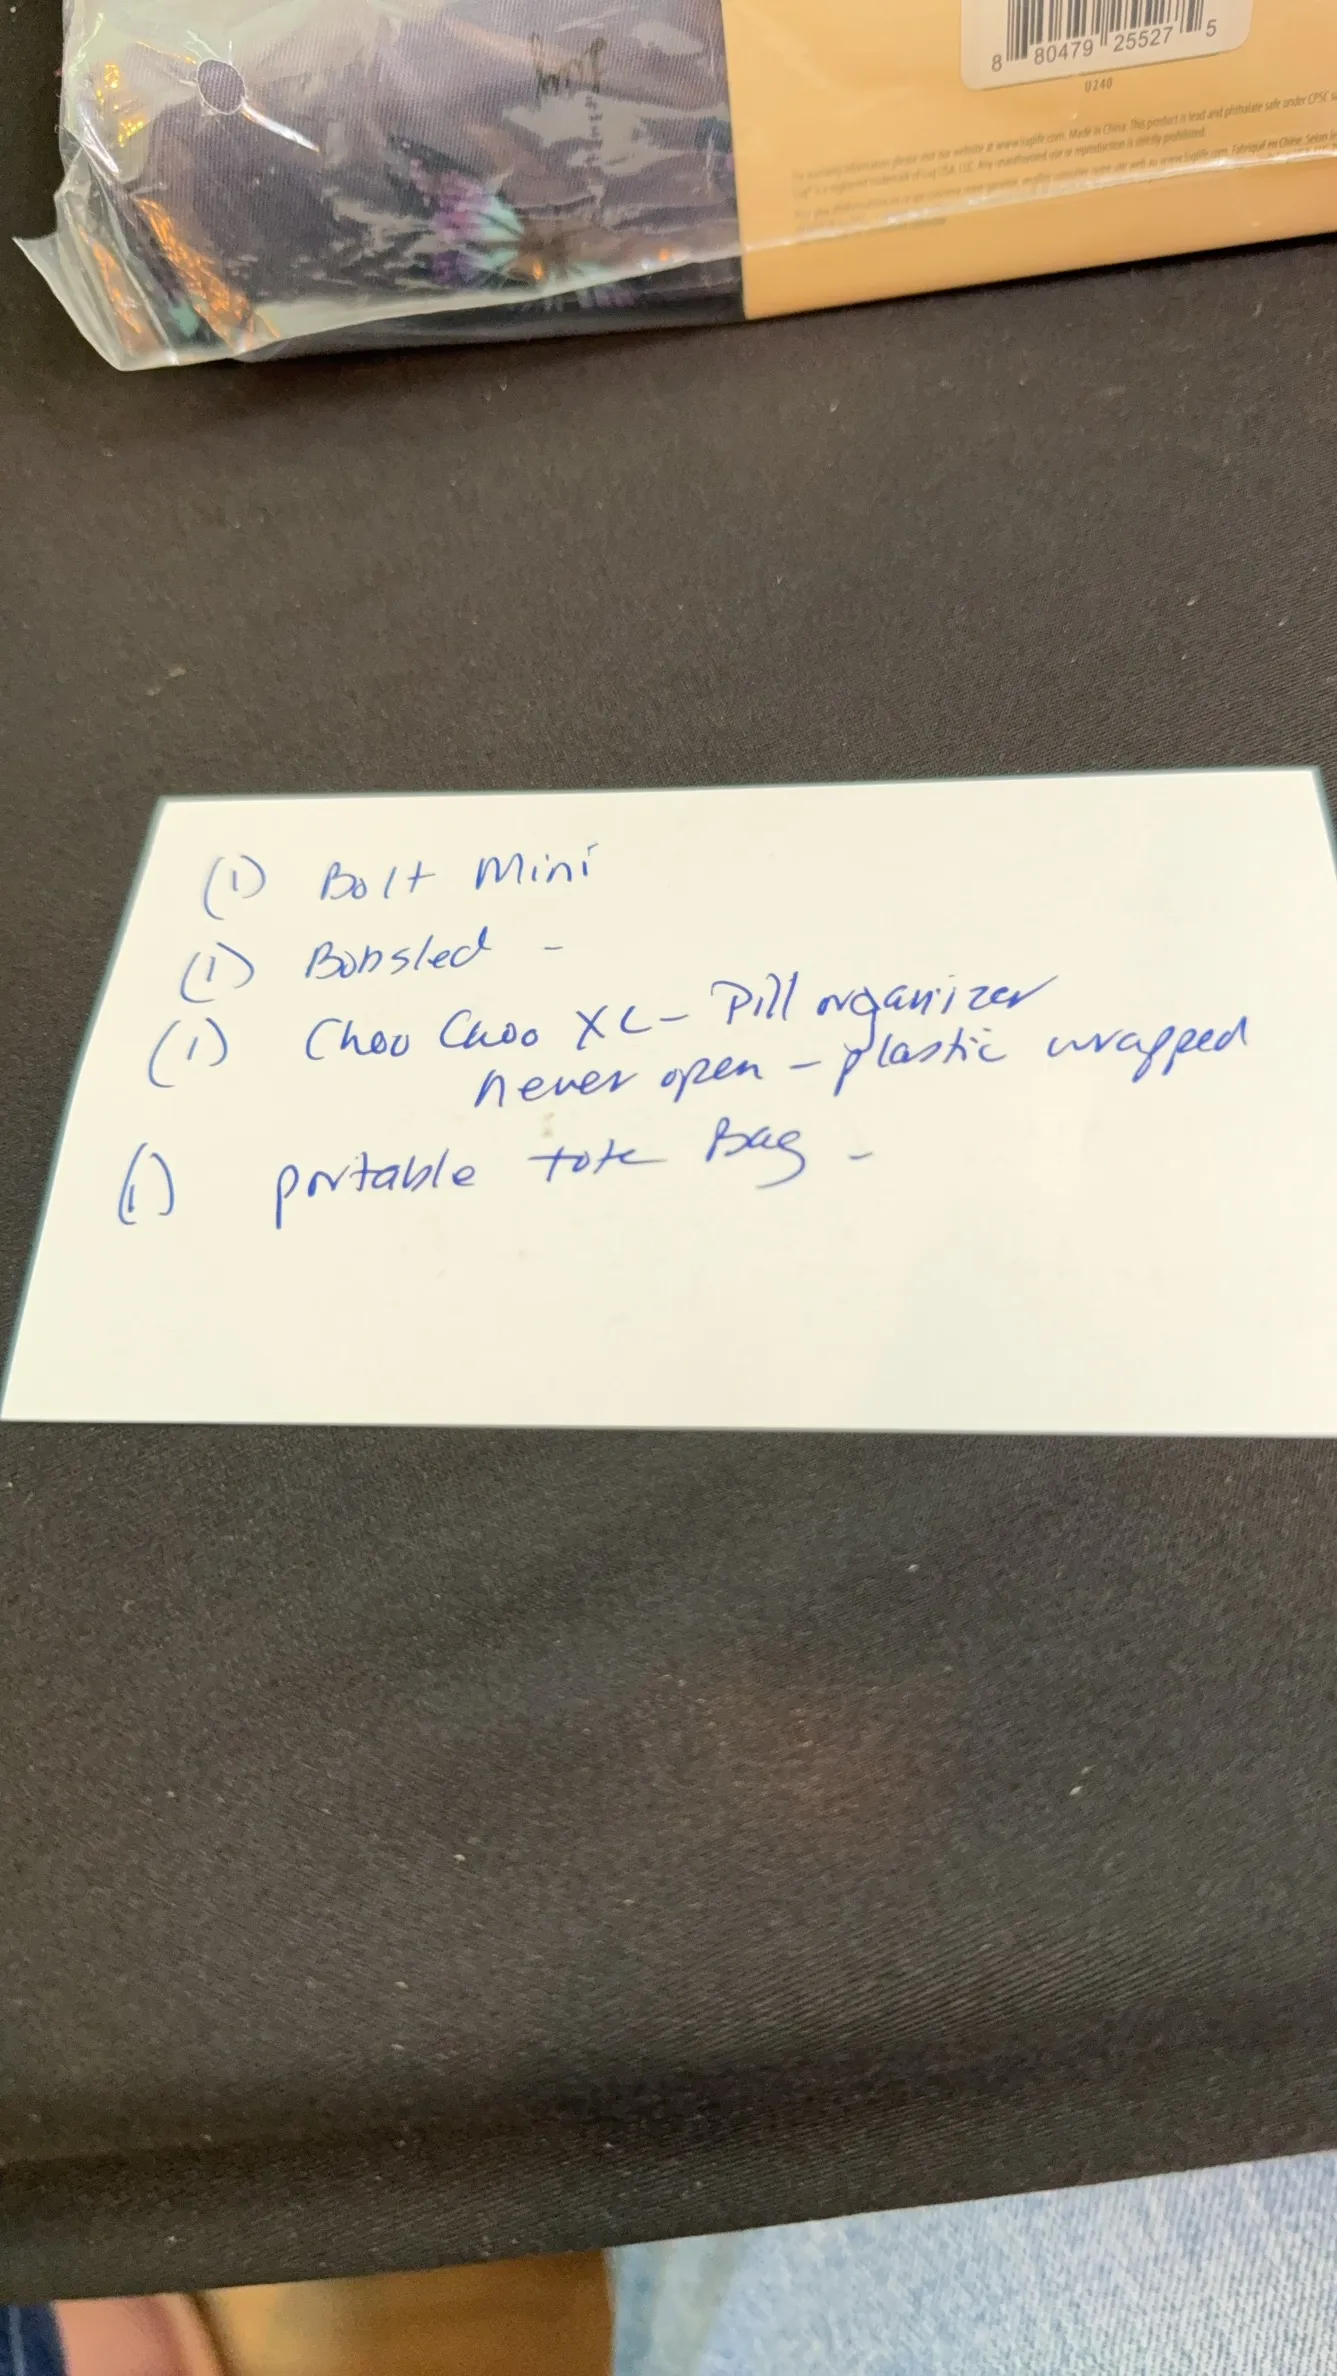 8 80479 25527 5
U240
For warranty information please visit our website at www.luglife.com. Made in China. This product is lead and phthalate safe under CPSC
Lug® is a registered trademark of Lug USA, LLC. Any unauthorized use or reproduction is strictly prohibited.
www.luglife.com. Fabriqué en Chine. Selon
(1) Bolt Mini
(1) Bobsled -
(1) Choo Choo XL - Pill organizer
never open - plastic wrapped
(1) portable tote Bag -